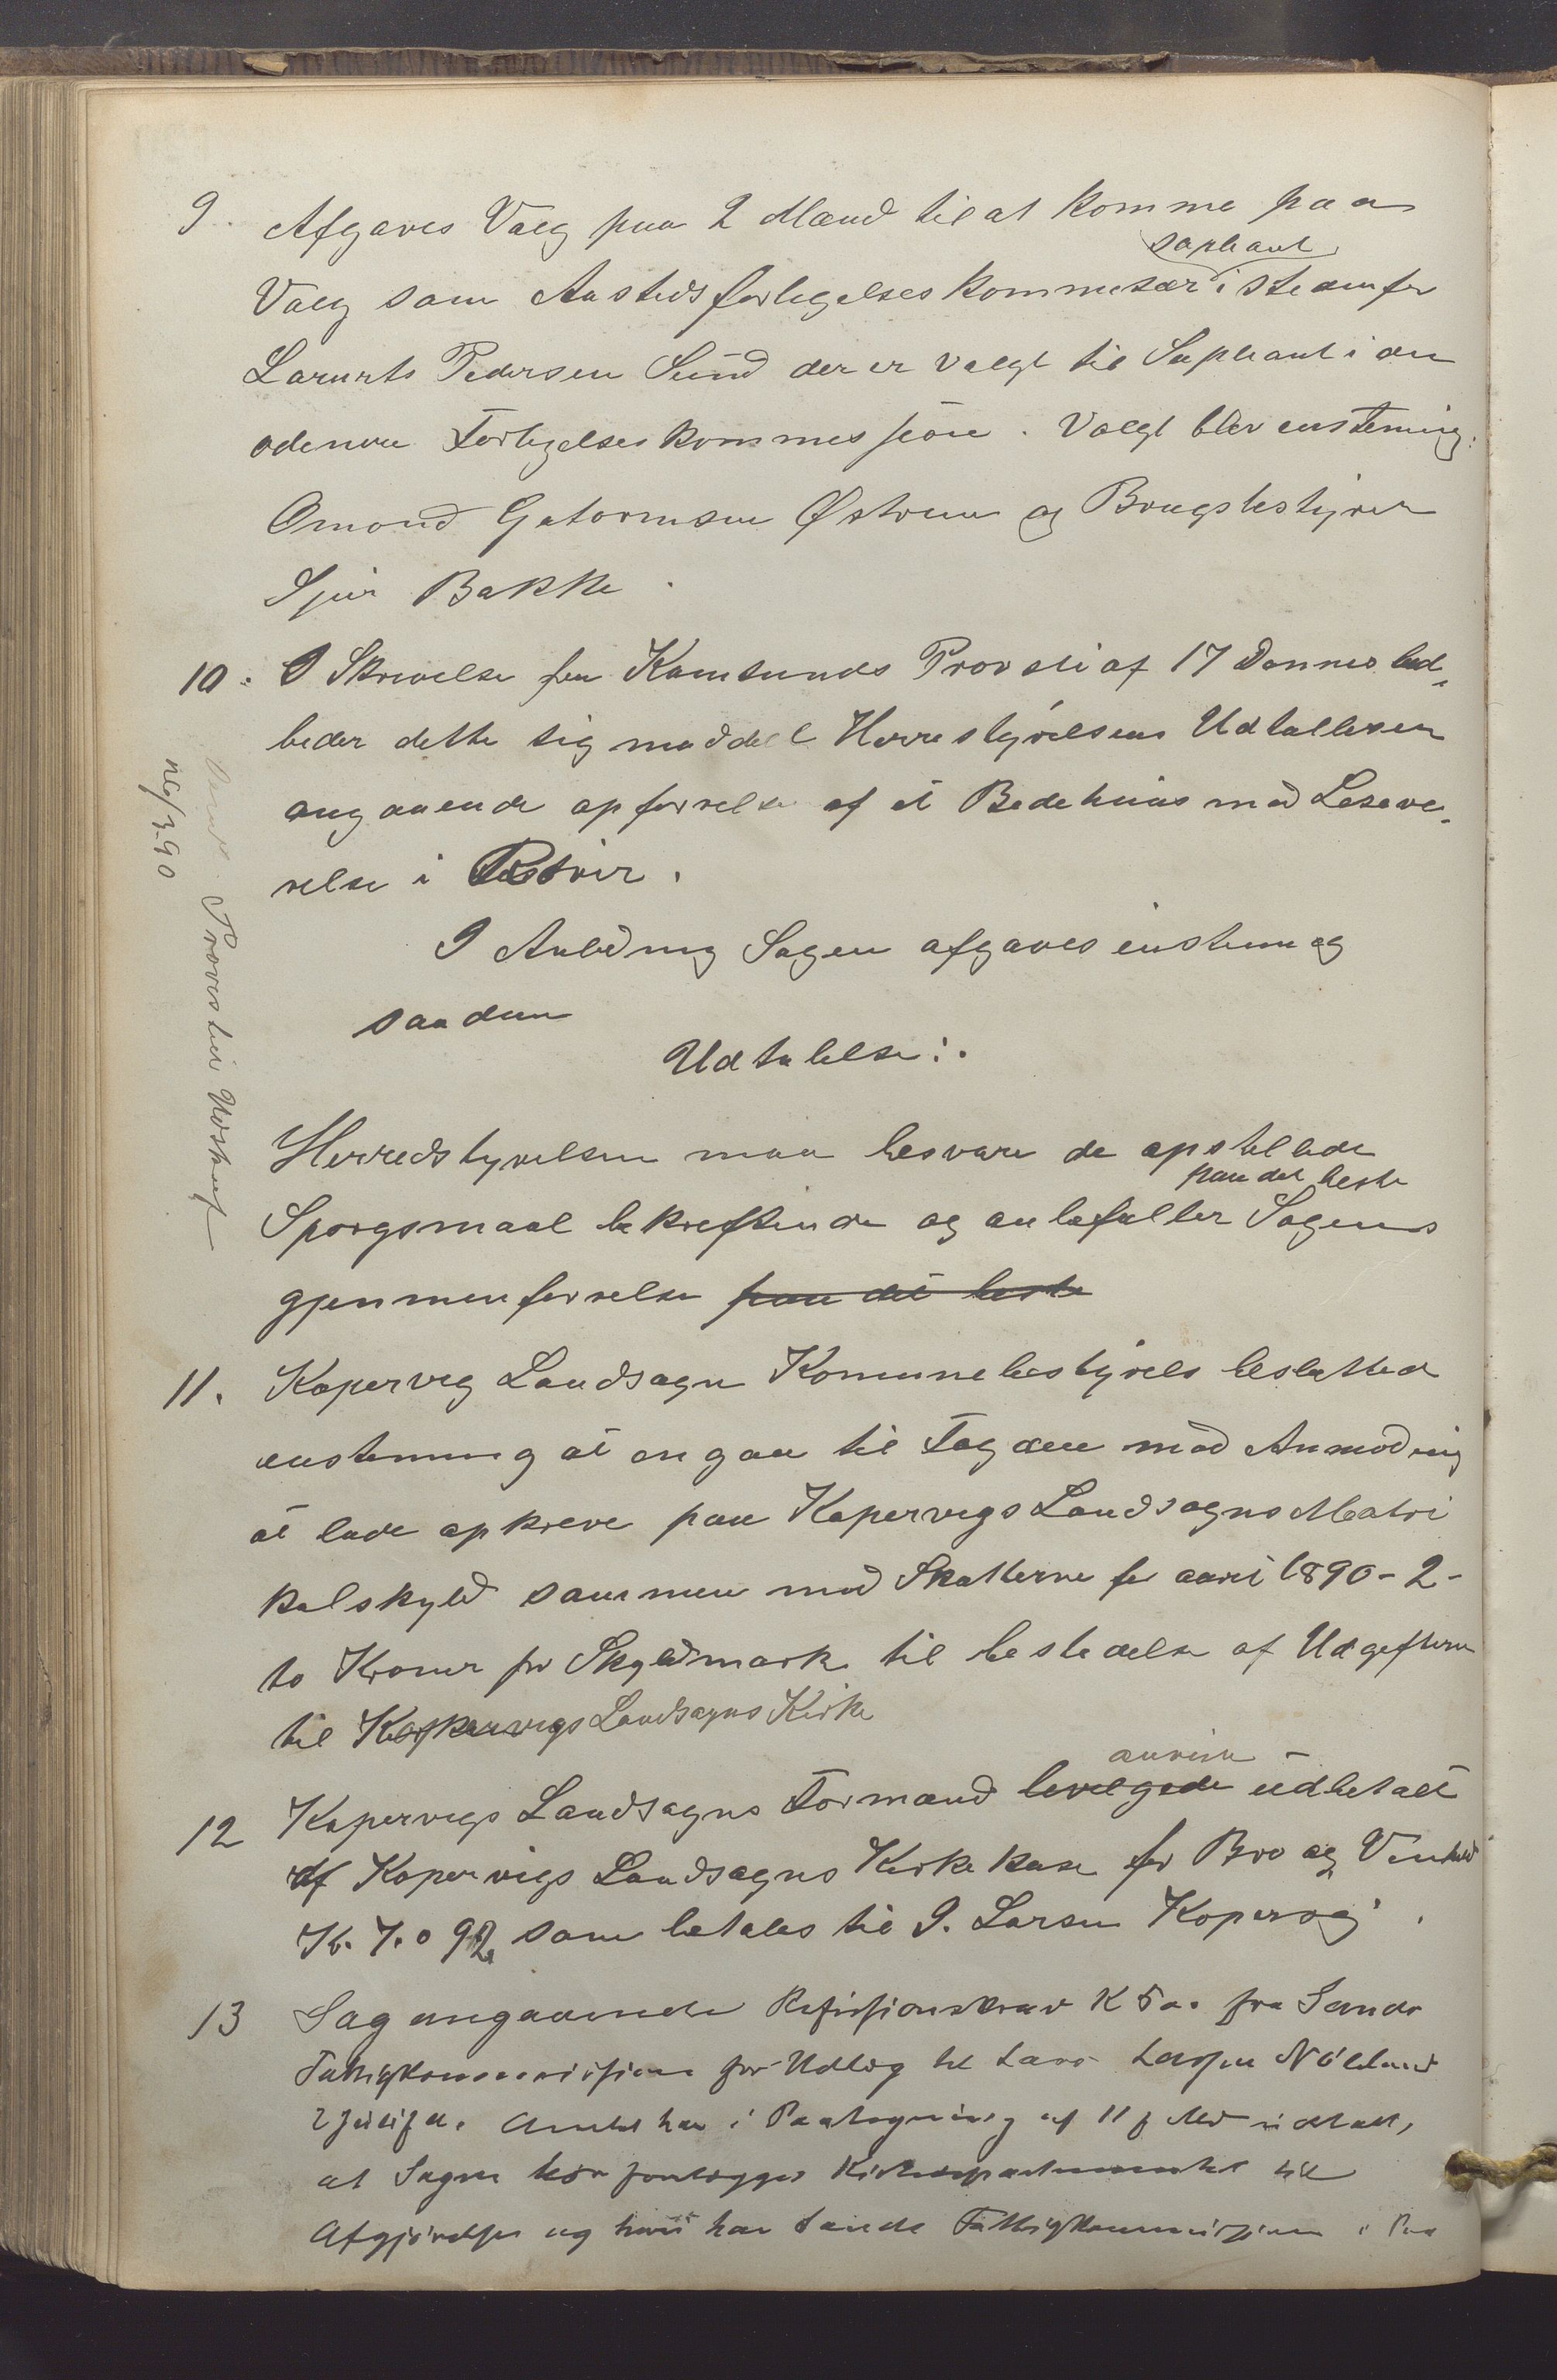 9. Afgaves Valg paa 2 Mænd til at komme paa
supleant
Valg som Aastedsforligelseskommesær i stedenfor
Laruits Pedersen Sund der er valgt til Supleant i den
odenere Forligelseskommessjon. Valgt blev enstemig:
Omond Gutormsen Østrem og Brugsbestyrer
Sjur Bakke.
10. I Skrivelse fra Karmsunds Provsti af 17 Dennes bed-
beder dette sig meddelt Herrestyrelsens Udtallelsen
angaaende opførelse af et Bedehuus med Leseve-
relse i
I Anledning Sagen afgaves enstemig
saadan
Udtalelse:.
Herredstyrelsen maa besvare de opstillede
paa det beste
Spørgsmaal bekreftende og anbefaller Sagens
gjennemførelse paa det beste
11. Kopervig Landsogn Komunebestyrels besluttede
enstemmig at angaa til Fogden med Anmodning
at lade opkreve paa Kopervigs Landsogns Matri
kulskyld sammen med Skatterne for aaret 1890 - 2 -
to Kroner pr Skyldmark til bestridelse af Udgifterne
til Kopervigs Landsogns Kirke
anvise
12 Kopervigs Landsogns Formand bevilgede udbetalt
af Kopervigs Landsogns Kirkekase for Bro og
Kr. 7.092 som betales til J. Larsen Kopervig.
13 Sag angaaende Refusionskrav K 50. fra Sands
Fattigkommission for Udlæg til Lars Larsen
Amtet har i Paategning af 11 f Md udtalt,
at Sagen bør forelægges Kirkedepartementet til
Afgjørelse og har Sands Fattigkommission i Paa
Sendt Provstiet Udskrift
26/3 90